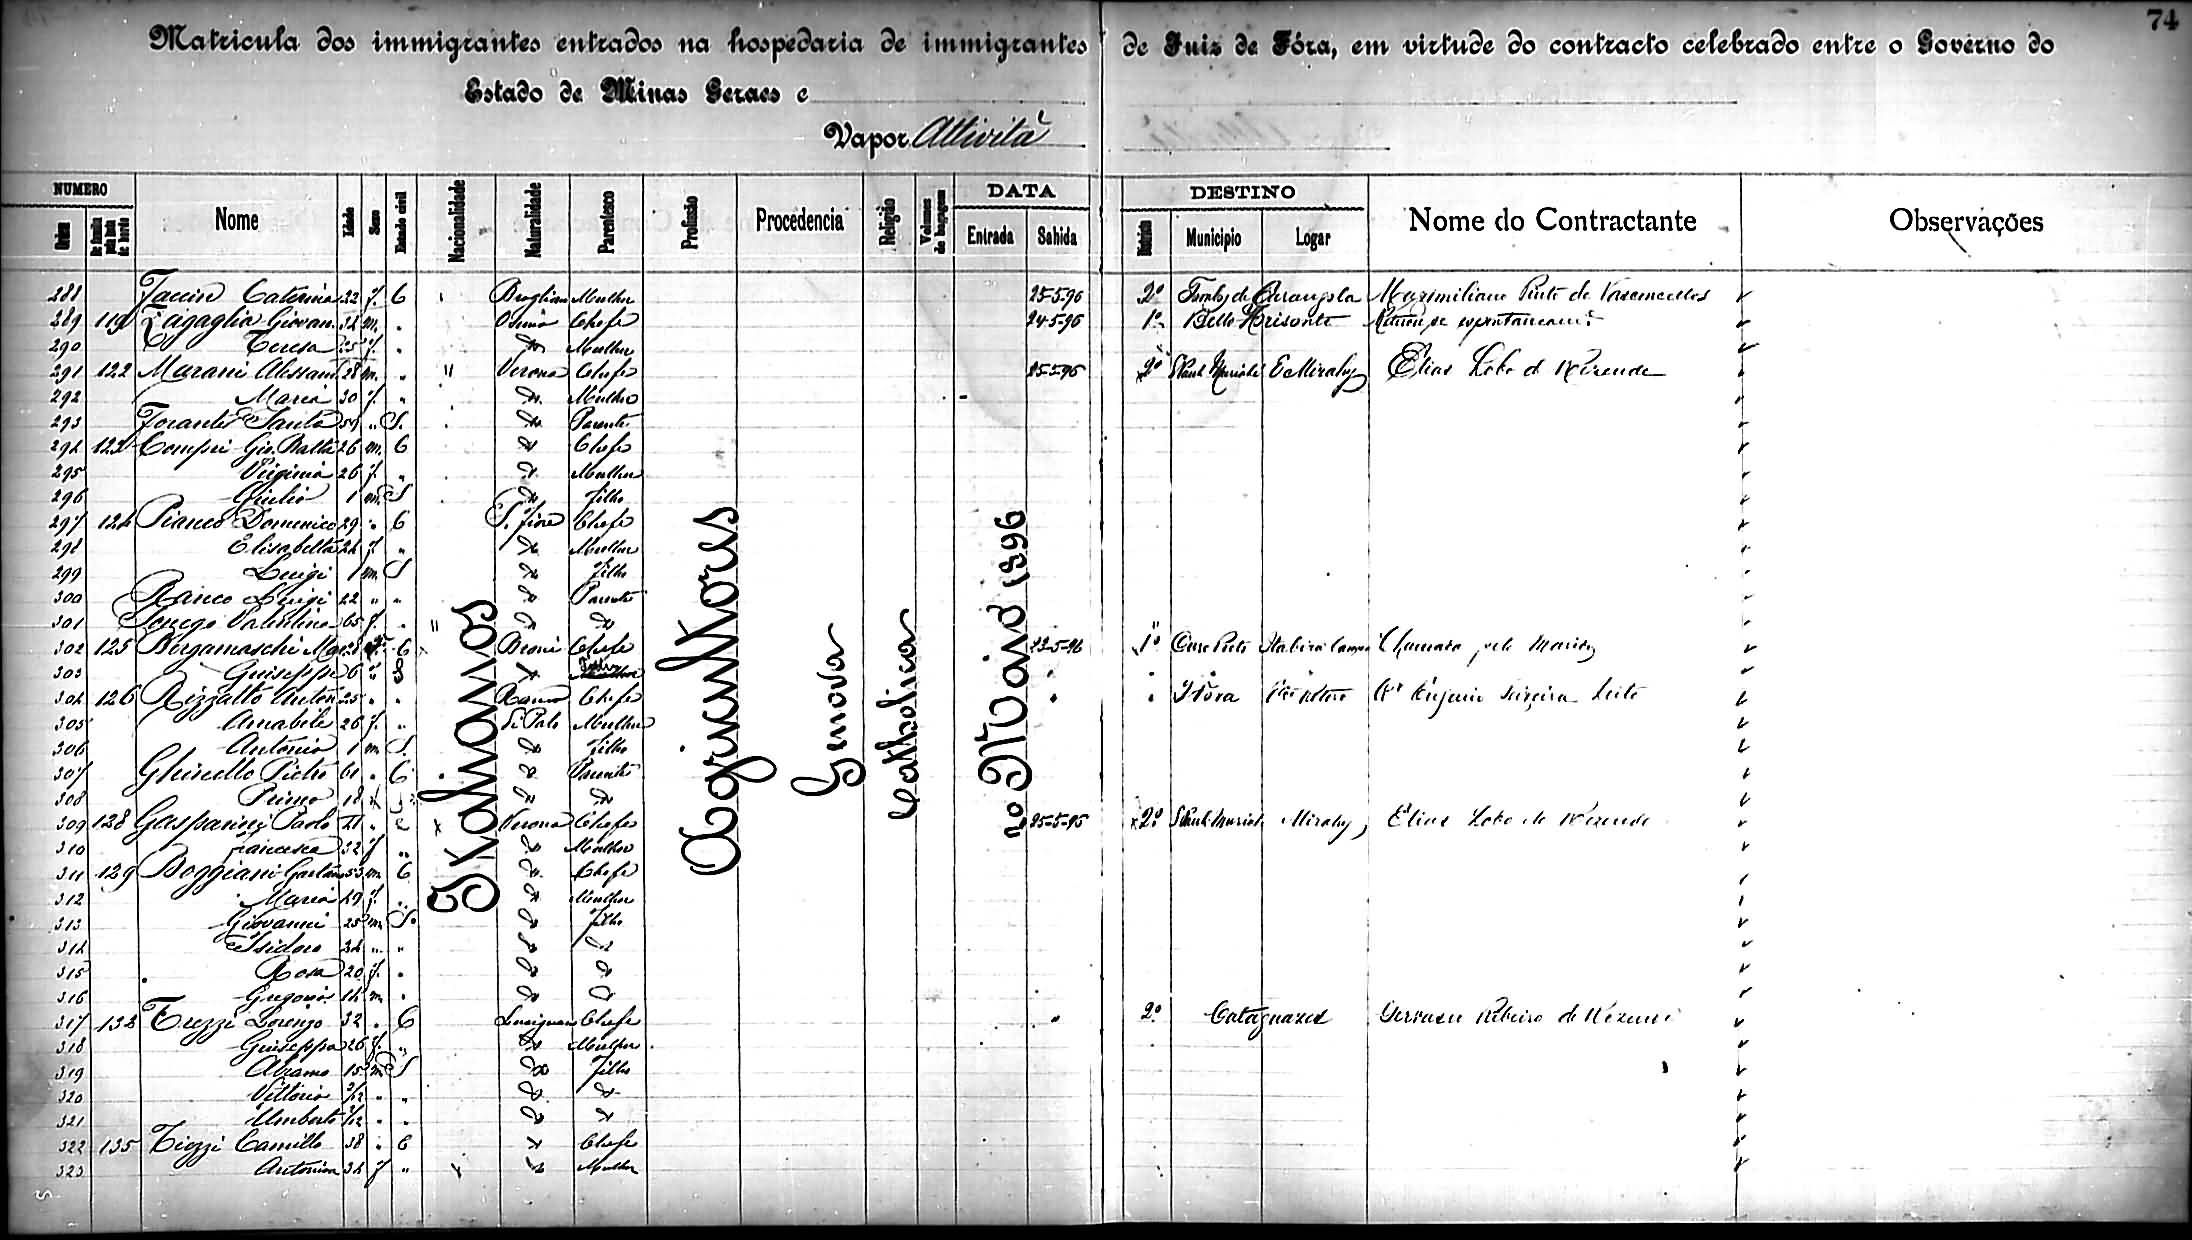 74
Matricula dos immigrantes entrados na hospedaria de immigrantes de Juiz de Fóra, em virtude do contracto celebrado entre o Governo do
Estado de Minas Geraes e
Vapor Attività
NUMERO DATA DESTINO
Ordem Nome Idade Sexo Estado civil Nacionalidade Naturalidade Parentesco Profissão Procedencia Religião Volumes de bagagem Entrada Sahida Districto Municipio Logar Nome do Contractante Observações
Italianos Agricultores Genova Catholica 20 Maio 1896
288 Caterina 22 f. C Mulher 25-5-96 2º Carangola Maximiliano Pinto de Vasconcellos
289 119 Zagaglia Giovan. 34 m. " Osimo Chefe 24-5-96 1º Bello Horisonte Retirou-se espontaneamte
290 Teresa 25 f. " Mulher
291 122 Marani Alessand 28 m. " " Verona Chefe 25-5-96 2º S Paulo Muriahé Mirahy Elias Lobo de Rezende
292 Maria 30 f. " Mulher
293 Santa " S. Parente
294 123 Compri Gio. Batta 26 m. C Chefe
295 Virginia 26 f. " Mulher
296 Giulio 1 m. S filho
297 124 Domenico 29 " C S. Chefe
298 Elisabetta 24 f. " Mulher
299 Luigi 1 m. S filho
300 Luigi 22 " " Parente
301 Valentina 65 f. "
302 125 Bergamaschi C Broni Chefe 23-5-96 1º Ouro Preto Itabira Campo Chamada pelo Marido
303 Guiseppe 6 " S
304 126 Rizzatto Anton 25 " " Chefe " " J Fóra Eugenio Teixeira Leite
305 Amabile 26 f. " Di Polo Mulher
306 Antonio 1 m S. filho
307 Pietro 61 " C Parente
308 Primo 18
309 128 Gasparini Paolo " C Verona Chefe 25-5-95 2º S Paulo Muriahé Mirahy Elias Lobo de Rezende
310 Francesca 32 f " Mulher
311 129 Boggiani Gaetano 53 m C Chefe
312 Maria 49 f. " Mulher
313 Giovanni 25 m S. filho
314 Isidoro 24 " "
315 Rosa 20 f. "
316 Gregorio 14 m "
317 132 Trezzi Lorenzo 32 " C Chefe " 2º Cataguazes Gervasio Ribeiro de Rezende
318 Guiseppa 26 f. " Mulher
319 Abramo 15 m S filho
320 Vittorio 2/12 " "
321 Umberto " "
322 135 Tiozzi Camillo 38 " C Chefe
323 Antonia 34 f " Mulher